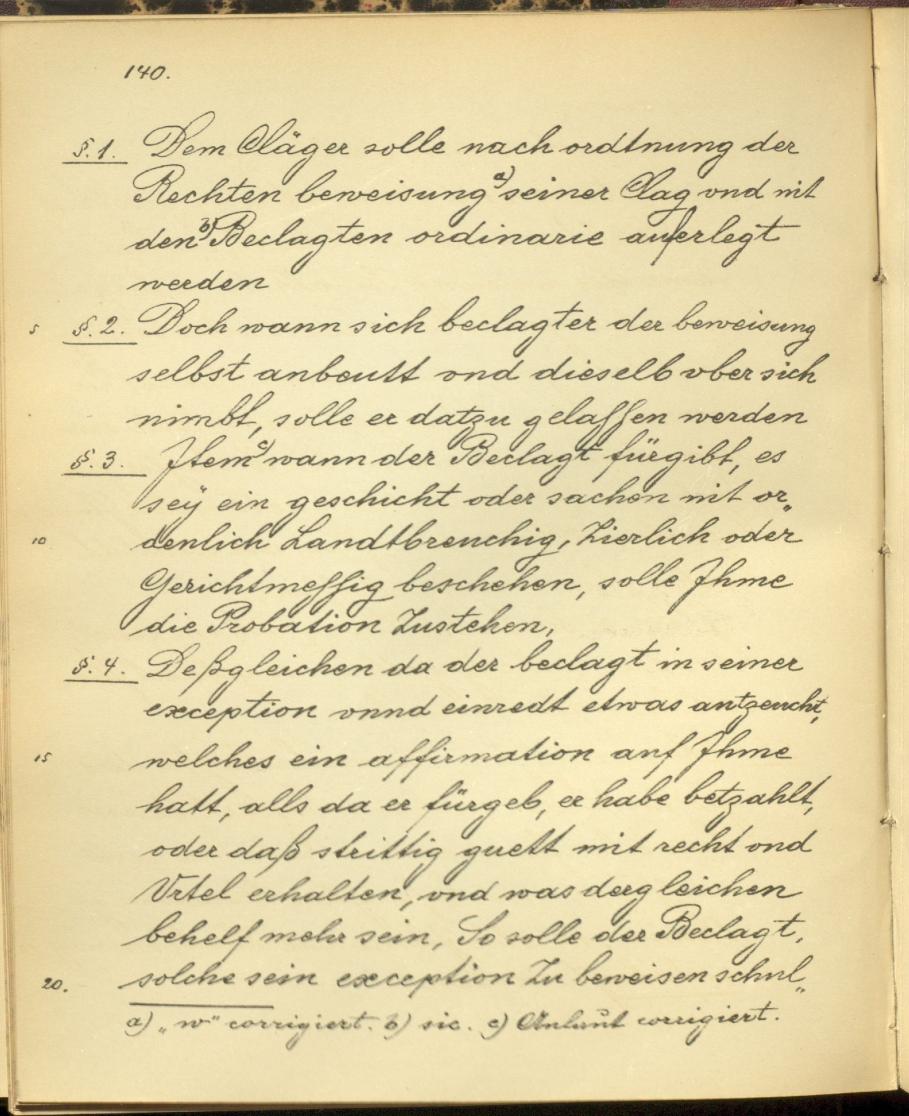 140.
§. 1. Dem Cläger solle nach ordtnung der
Rechten beweisung a) seiner Clag vnd nit
den b) Beclagten ordinarie auferlegt
werden
5 §. 2. Doch wann sich beclagter der beweisung
selbst anbeutt vnd dieselb vber sich
nimbt, solle er datzu gelassen werden
§. 3. Item c) wann der Beclagt fürgibt, es
seÿ ein geschicht oder sachen nit or„
10 denlich Landtbreuchig, Zierlich oder
Gerichtmessig beschehen, solle Jhme
die Probation Zustehen,
§. 4. Deßgleichen da der beclagt in seiner
exception vnnd einredt etwas antzeucht,
15 welches ein affirmation auf Jhme
hatt, alls da er fürgeb, er habe betzahlt,
oder daß strittig guett mit recht vnd
Vrtel erhalten, vnd was dergleichen
behelf mehr sein, So solle der Beclagt,
20. solche sein exception Zu beweisen schul„
a) „w“ corrigiert. b) sic. c) Anlaut corrigiert.